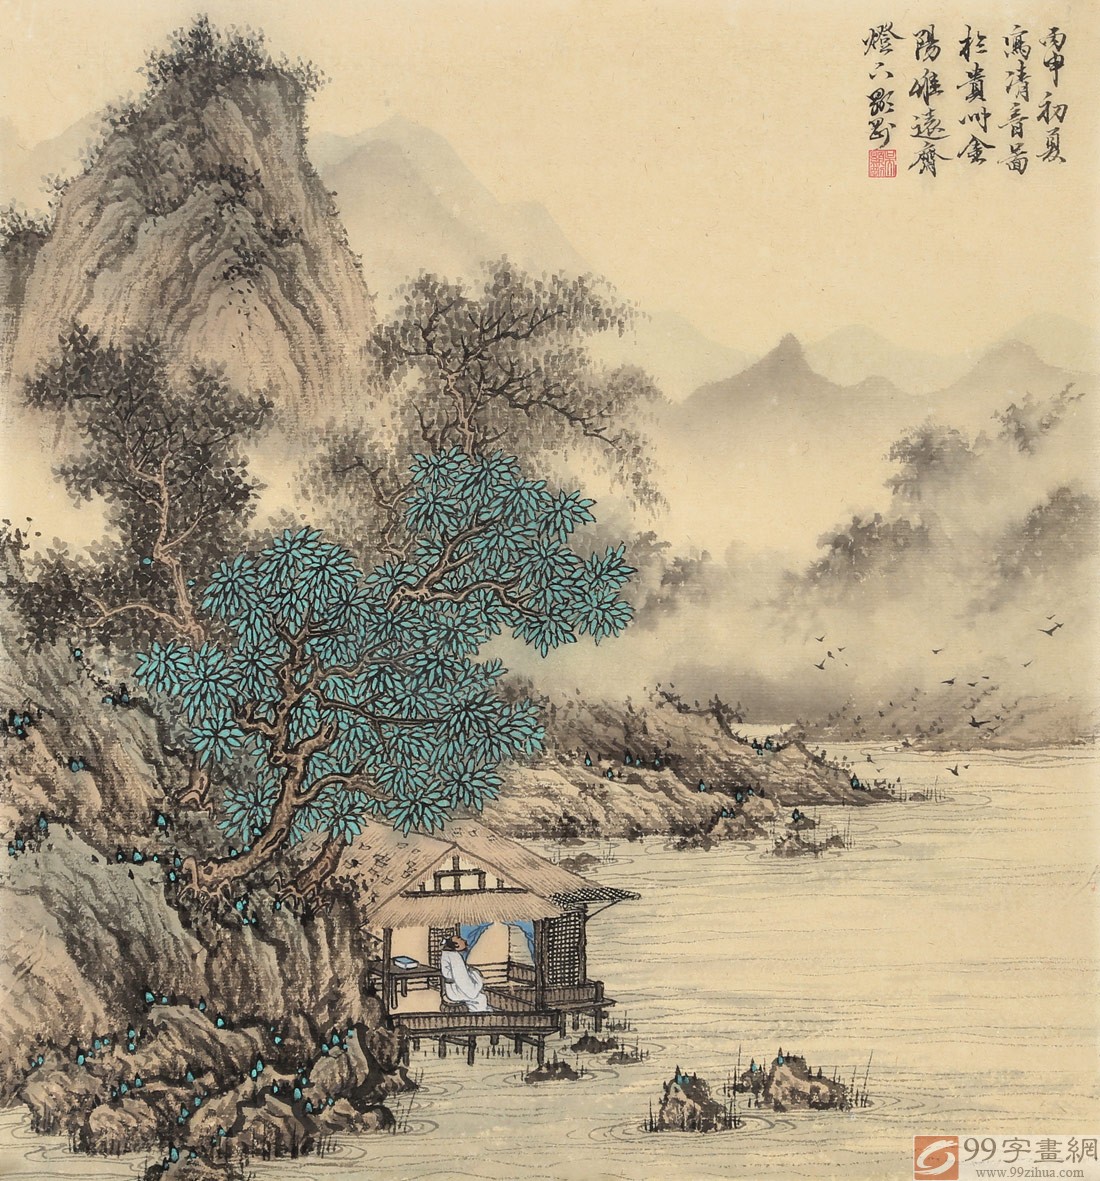 丙申初夏
寫清音圖
於貴州金
陽惟遠齋
燈下
99字畫網
www.99zihua.com